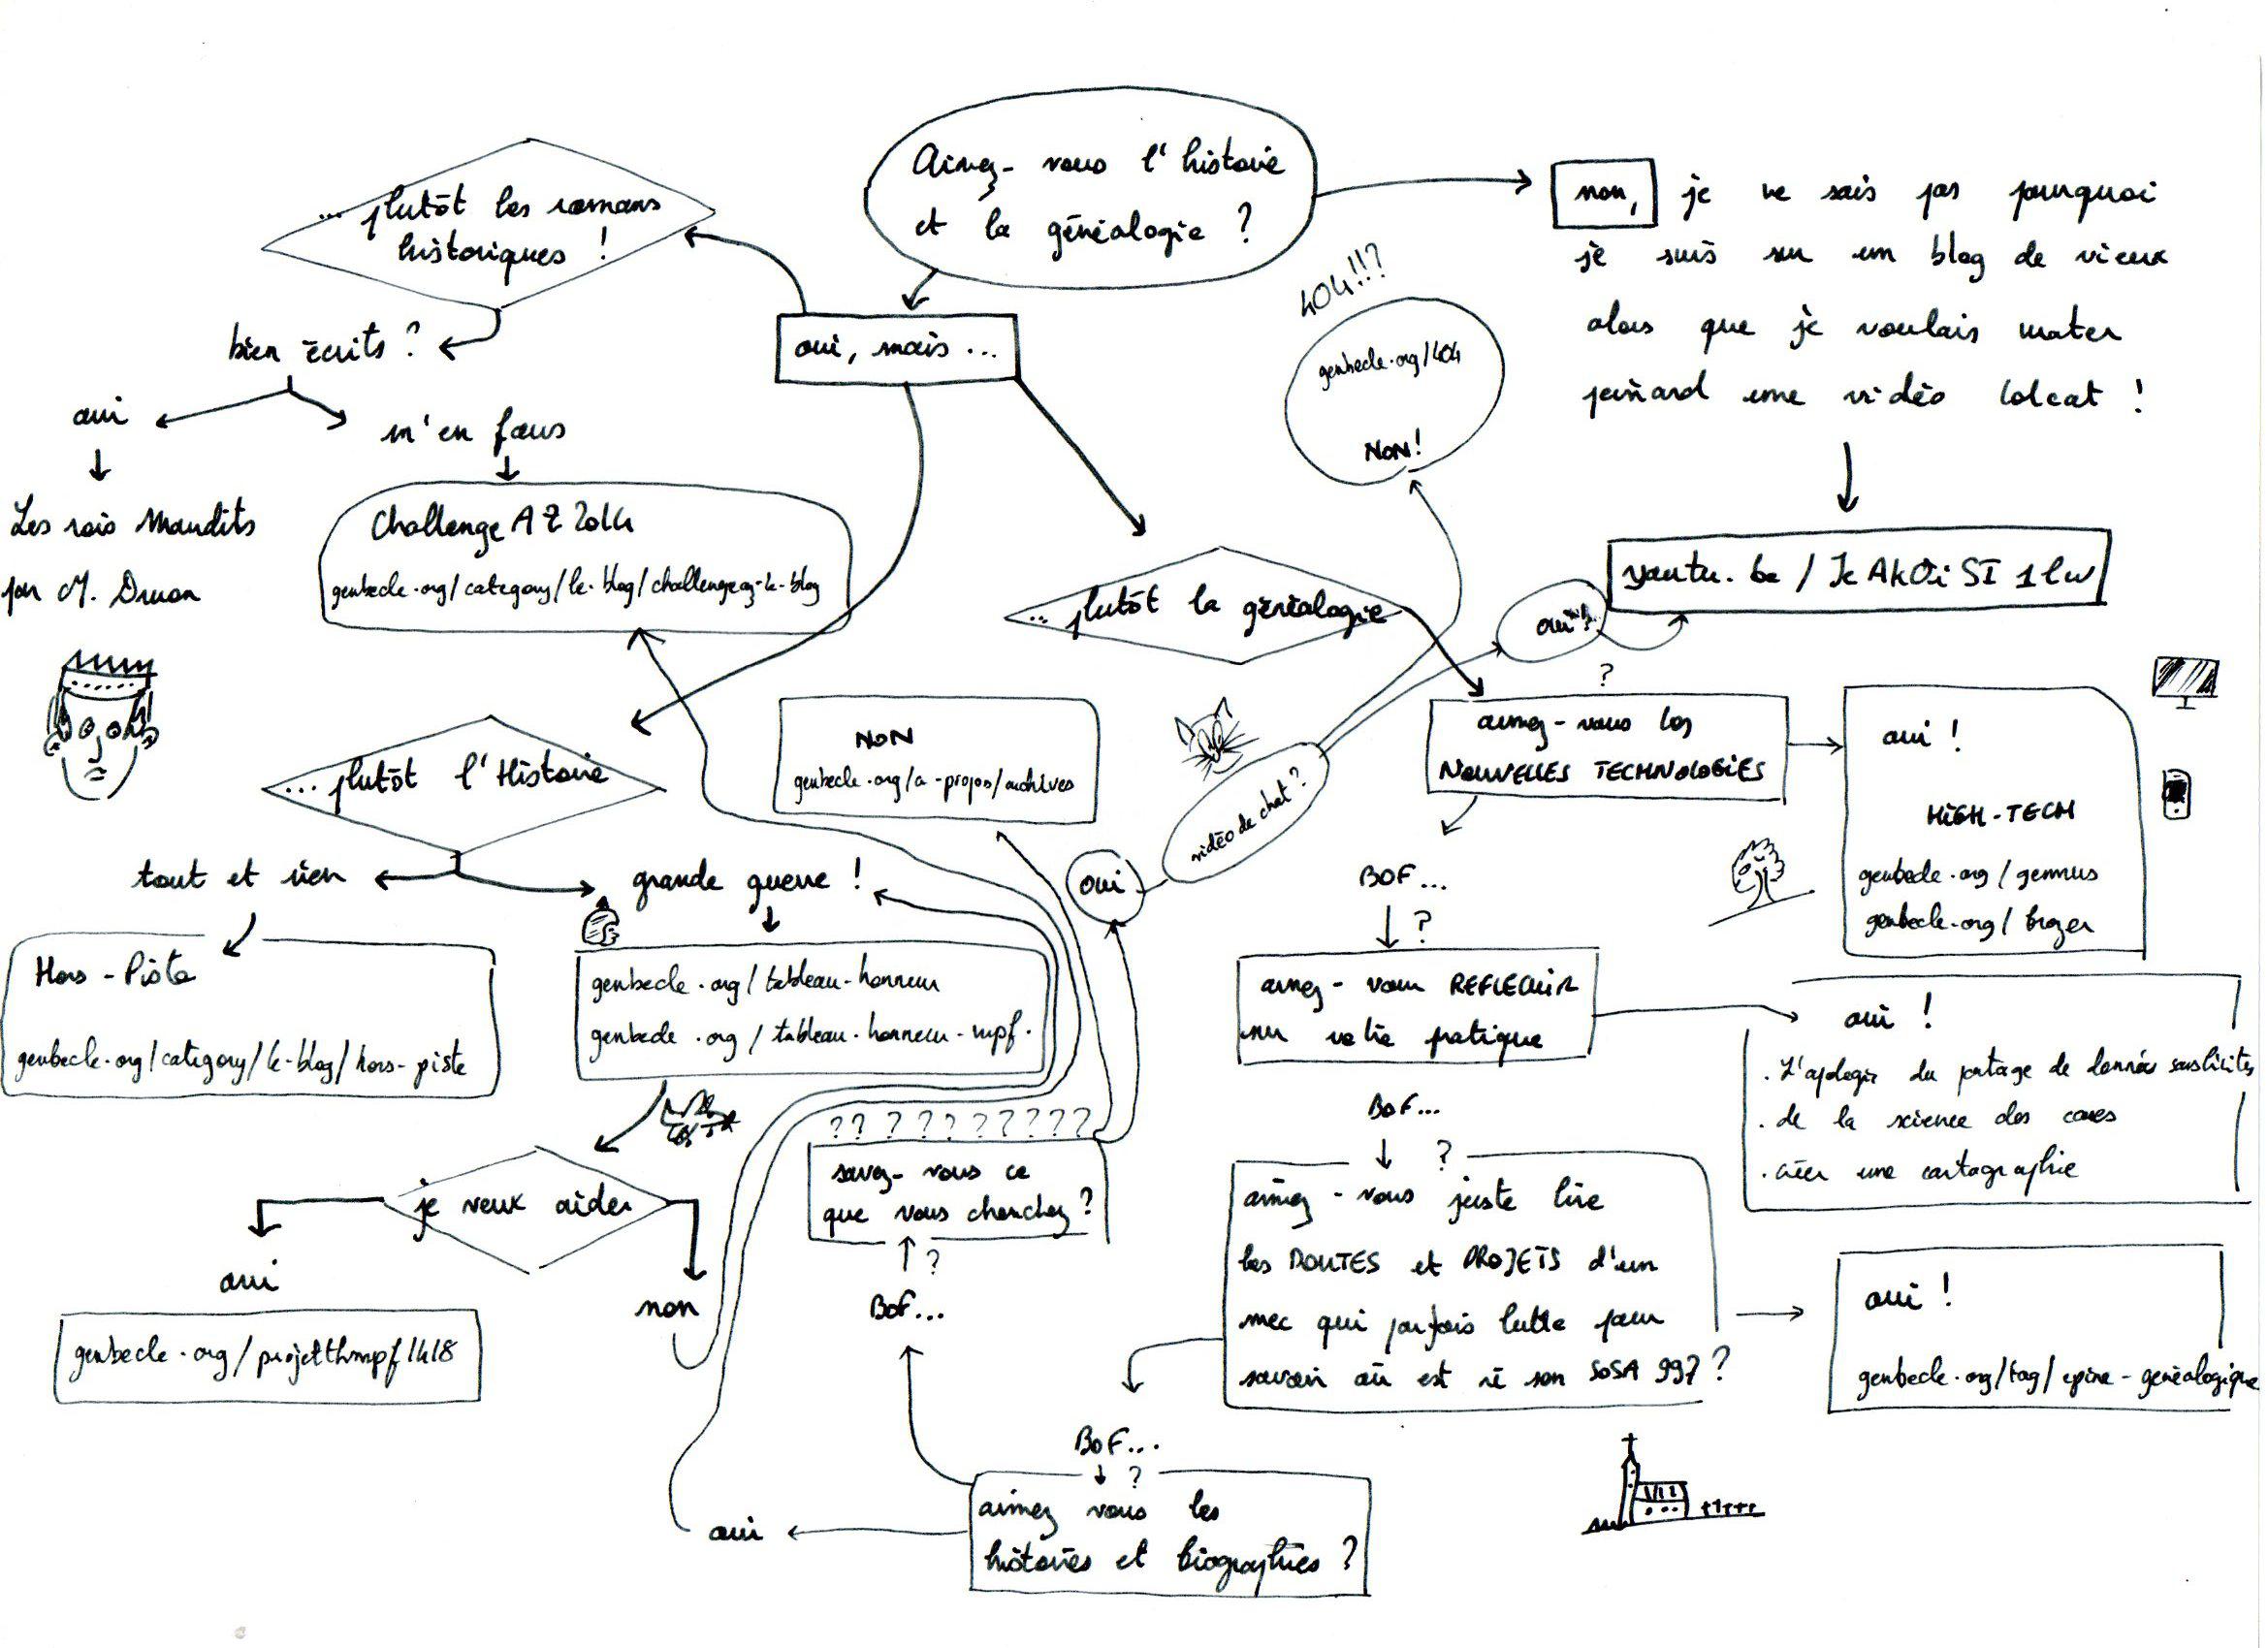 Aimez-vous l'histoire
et la généalogie ?
non, je ne sais pas pourquoi
je suis sur un blog de vieux
alors que je voulais mater
peinard une vidéo lolcat !
... plutôt les romans
historiques !
oui, mais ...
bien écrits ?
oui
m'en fous
Les rois Maudits
par M. Druon
Challenge AZ 2014
genbecle.org/category/le-blog/challengeaz-le-blog
404!!?
genbecle.org/404
NON!
youtu.be/
oui !?
... plutôt la généalogie
... plutôt l'Histoire
NON
genbecle.org/a-propos/archives
vidéo de chat ?
oui
?
aimez-vous les
NOUVELLES TECHNOLOGIES
oui !
HIGH-TECH
genbecle.org/genmus
genbecle.org/
tout et rien
grande guerre !
Hors-Piste
genbecle.org/category/le-blog/hors-piste
genbecle.org/tableau-honneur
genbecle.org/tableau-honneur-mpf.
BOF...
?
aimez-vous REFLECHIR
sur votre pratique
oui !
. L'apologie du partage de données
. de la science des
. créer une cartographie
BOF...
?
aimez-vous juste lire
les DOUTES et PROJETS d'un
mec qui parfois lutte pour
savoir où est né son SOSA 997 ?
oui !
genbecle.org/tag/epine-généalogique
je veux aider
oui
non
genbecle.org/projetthmpf1418
? ? ? ? ? ? ? ? ? ?
savez-vous ce
que vous cherchez ?
?
BOF...
BOF...
?
aimez vous les
histoires et biographies ?
oui